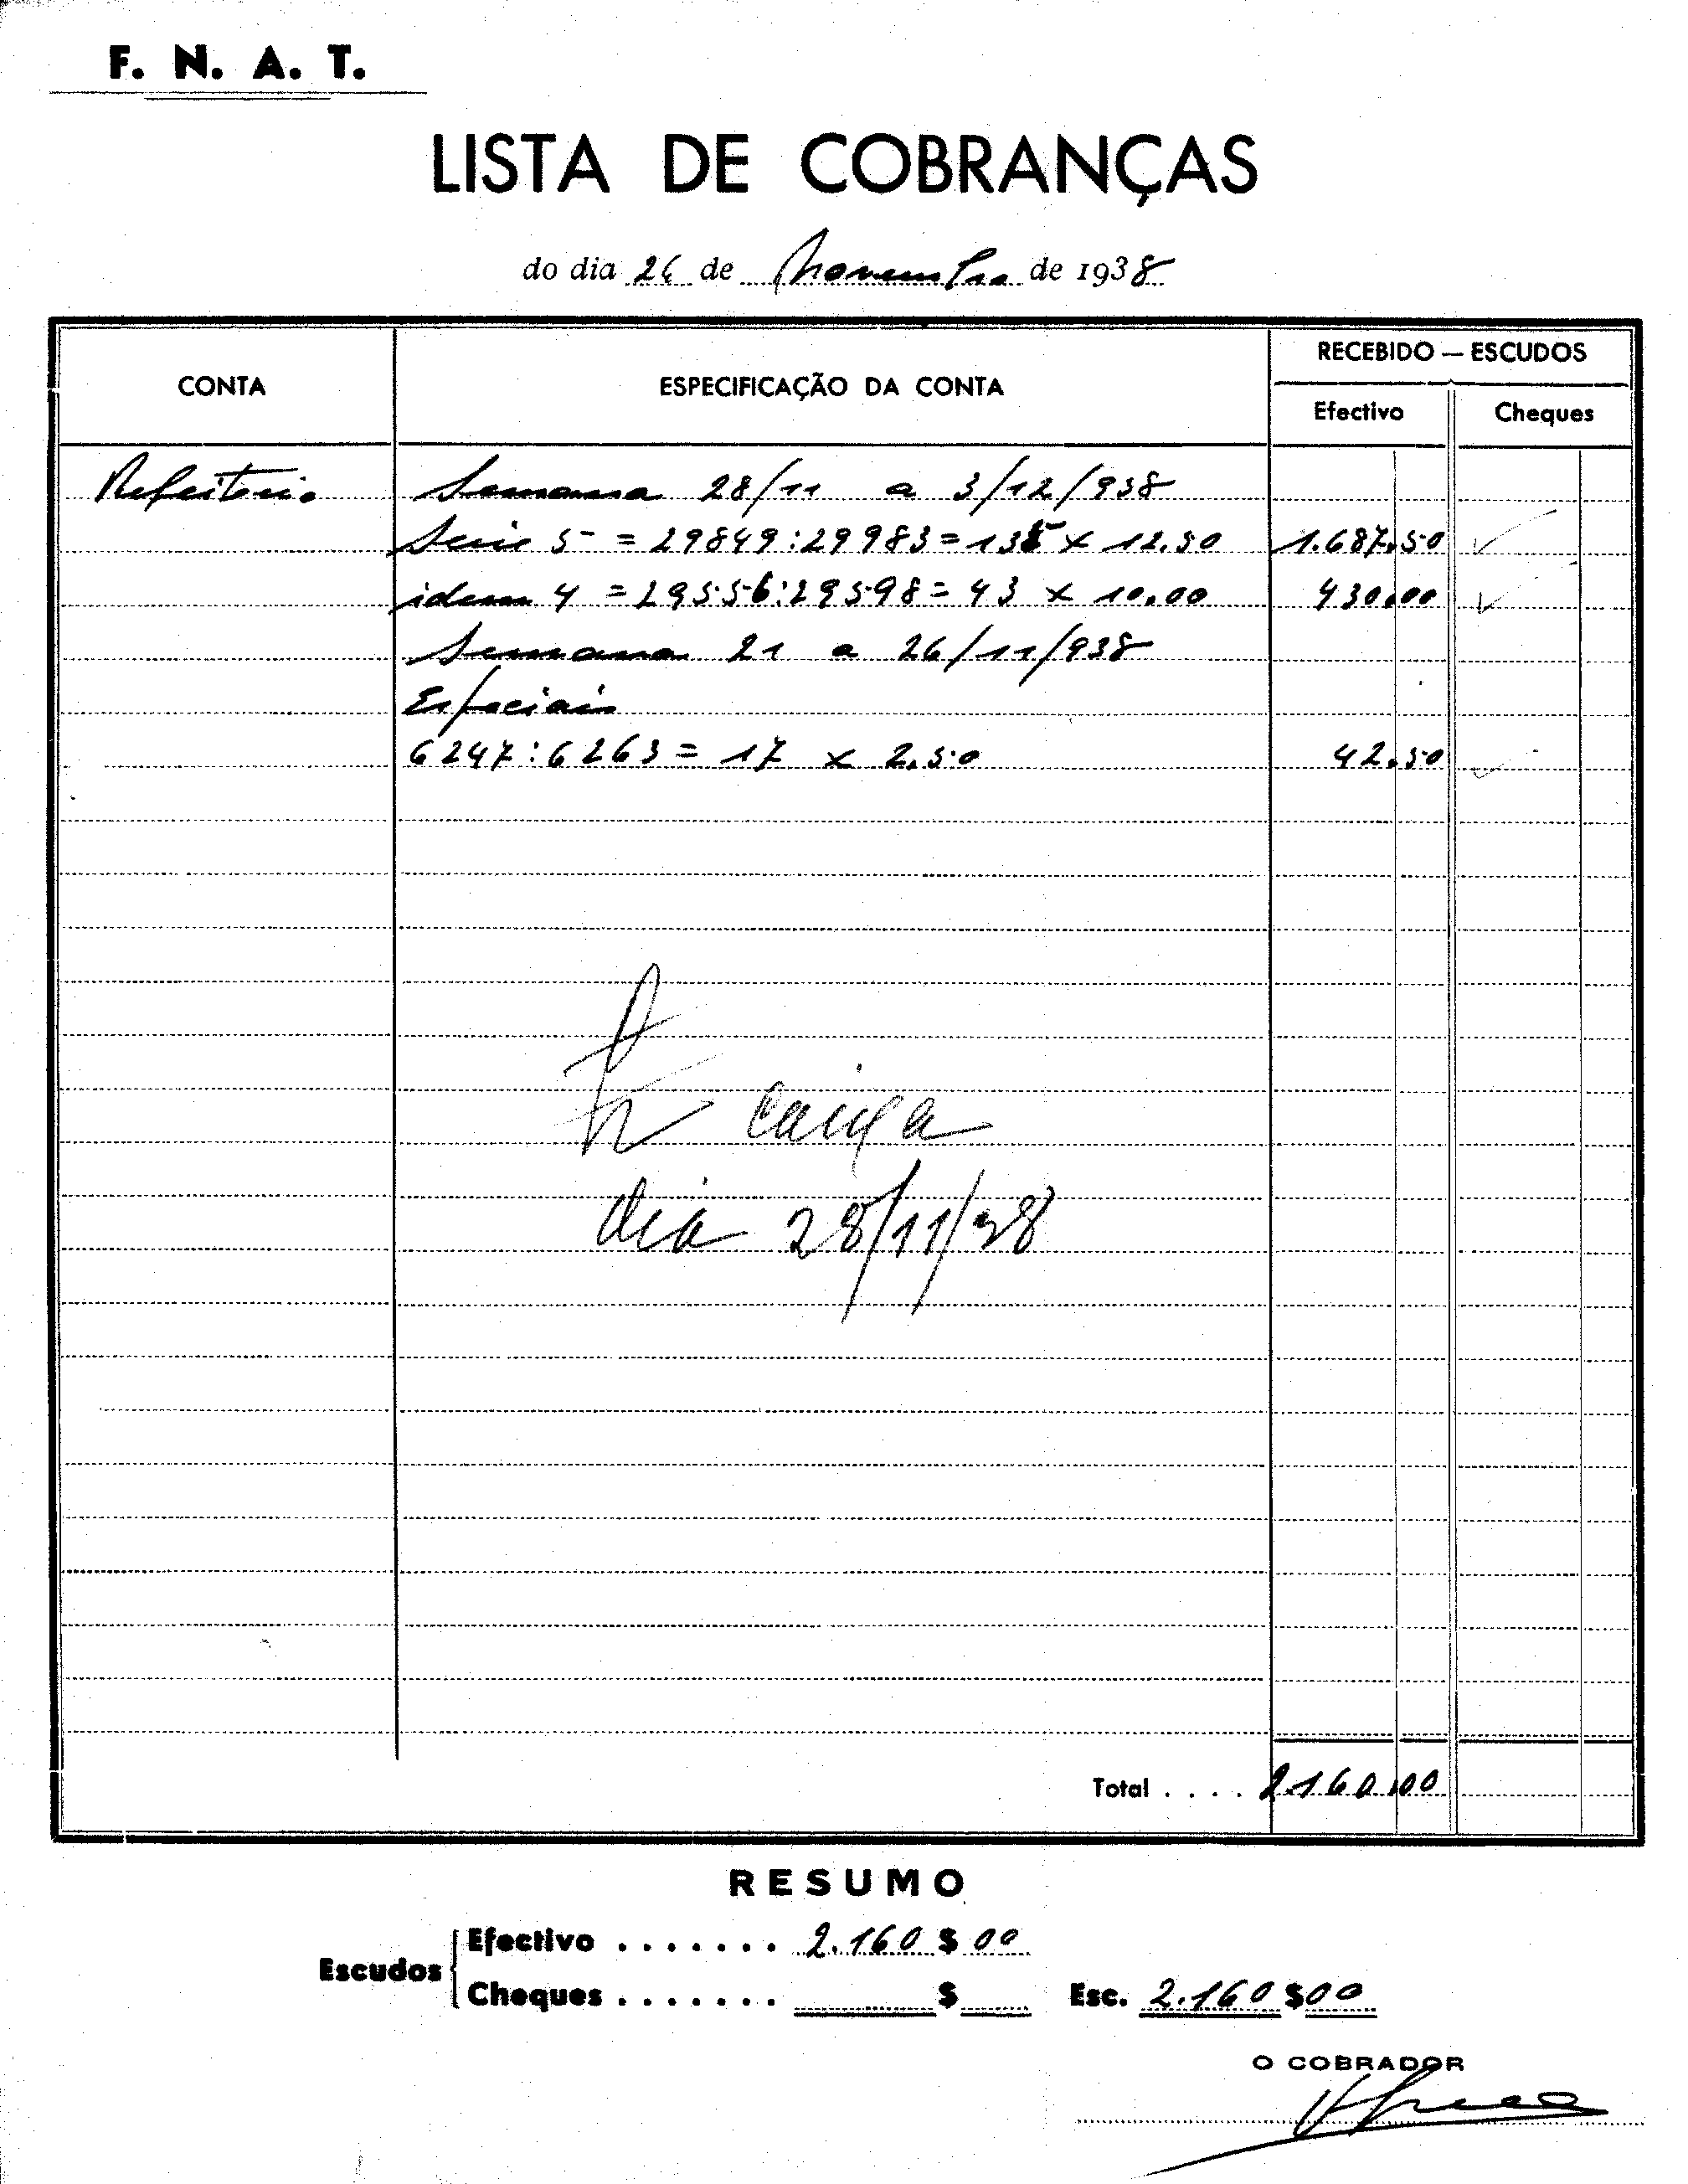 F. N. A. T.
LISTA DE COBRANÇAS
do dia 26 de Novembro de 1938
CONTA
ESPECIFICAÇÃO DA CONTA
RECEBIDO — ESCUDOS
Efectivo
Cheques
Refeitorio Semana 28/11 a 3/12/938
Serie 5 = 29849:29983 = 135 x 12.50 1.687.50
idem 4 = 29556:29598 = 43 x 10.00 430.00
Semana 21 a 26/11/938
Especiais
6247:6263 = 17 x 2.50 42.50
caixa
dia 28/11/38
Total . . . . 2160.00
RESUMO
Escudos
Efectivo . . . . . . . 2.160 $ 00
Cheques . . . . . . . $ Esc. 2.160 $00
O COBRADOR